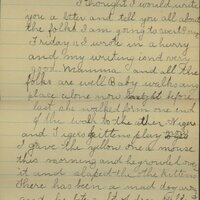 I thought I would write
you a letter and tell you all about
the folks I am going to
Friday I wrote in a hurry
and my writing isnd very
good Mamma and all the
folks are well Baby walks any
place alone now
last she walked from one end
of the walk to the other
and Tigers kittens play
I gave the yellow one a mouse
this morning and he growled over
it and slaped the kittens
There has been a mad dog